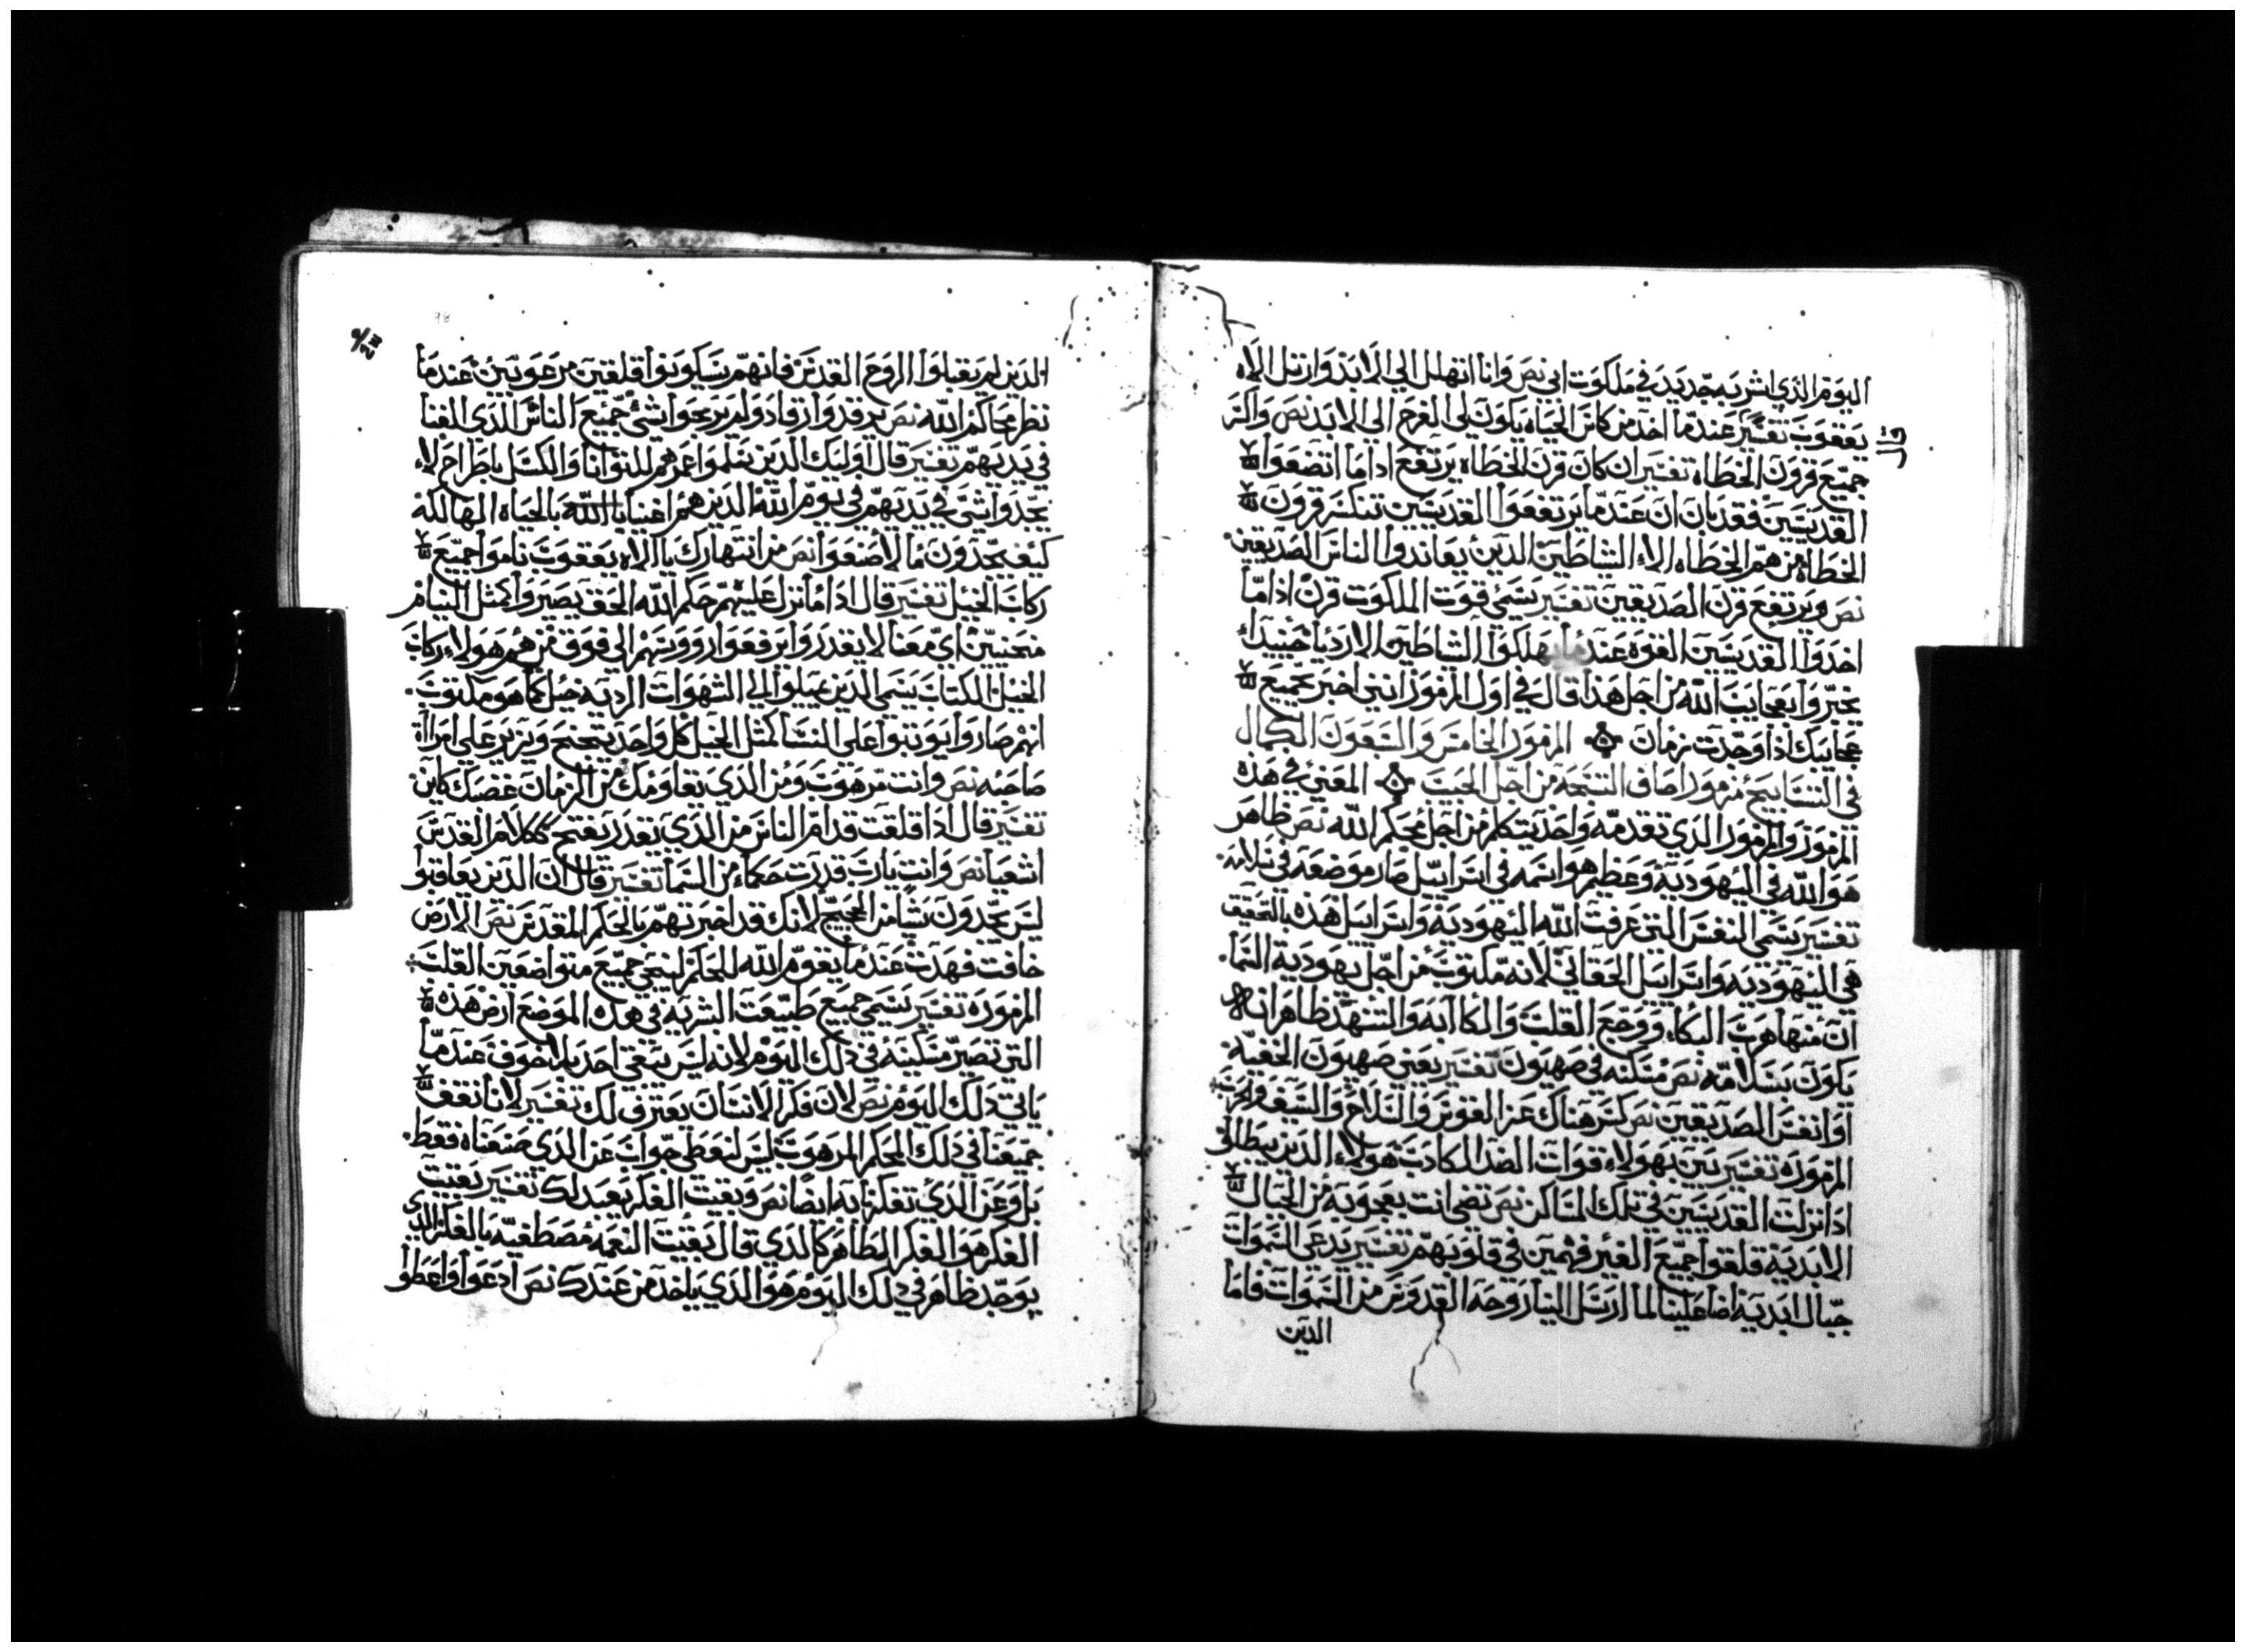 اليوم الذي اشربه جديد في ملكوت ابي نص وانا اتهلل الي الابد وارتل الاه
يعقوب تفسير عندما اخد من كاس الحياه يكون لي الفرح الي الابد نص واكسر
جميع قرون الخطاه تفسير ان كان قرن الخطاه يرتفع اداما اتضعوا
القديسين فقد بان ان عندما يرتفعوا القديسين تنكسر قرون
الخطاه من هم الخطاه الاء الشاطين الدين يعاندوا الناس الصديقين
نص ويرتفع قرن الصديقين تفسير يسمي قوت الملكوت قرن اداما
اخدوا القديسين القوه عندما يهلكوا الشاطين الارديا حينيدا
يخبروا بعجايب الله من اجل هدا قال في اول المزمور انني اخبر بجميع
عجايبك ادا وجدت زمان المزمور الخامس والسبعون الكمال
في التسابيح مزمور اصاف التسبحه من اجل الحبيب المعني في هده
المزمور والمزمور الدي تقدمه واحد يتكلم من اجل محكم الله نص ظاهر
هو الله في اليهوديه وعظيم هو اسمه في اسراييل صار موضعه في سلامه
تفسير يسمي النفس التي عرفت الله اليهوديه واسراييل هده بالتحقيق
هي اليهوديه واسراييل الحقاني لانه مكتوب من اجل يهوديه السما
ان منها هرب البكاء ووجع القلب والكاابه والتنهد ظاهر انه
يكون بسلامه نص مسكنه في صهيون تفسير يعني صهيون الحقيه
اوانفس الصديقين نص كسر هناك عز القوس والسلاح والسيف والحرب
المزموره تفسير بين بهولاء قوات الضد الكادب هولاء الدين يبطلوا
ادا نزلت القديسين في تلك المساكن نص تضي انت بعجوبه من الجبال
الابديه قلقوا جميع الغير فهمين في قلوبهم تفسير يدعي السموات
جبال ابديه اضا علينا لما ارسل الينا روحه القدوس من السموات فاما
الدين
الدين لم يقبلوا الروح القدس فانهم سيكونوا قلقين مرعوبين عندما
نظر محاكم الله نص رقدوا رقاد ولم يربحوا شي جميع الناس الدي للغنا
في يديهم تفسير قال اوليك الدين سلموا عمرهم للتوانا والكسل باطراح لاء
يجدوا شي في يديهم في يوم الله الدين هم اغنيا بالله بالحياه الهالكه
كيف يجدون ما لا صنعوا نص من انتهارك يا الاه يعقوب ناموا جميع
ركاب الخيل تفسير قال اداما نزل عليهم حكم الله الحق يصيروا كمثل النيام
منحنيين اي معنا لا يقدروا يرفعوا رووسهم الي فوق من هم هولاء ركاب
الخيل الكتاب يسمي الدين يميلوا الي الشهوات الرديه خيل كما هو مكتوب
انهم صاروا يوتبوا علي النسا كمثل الخيل كل واحد يتحنح ويزير علي امراة
صاحبه نص وانت مرهوب ومن الدي يقاومك من الزمان غضبك كاين
تفسير قال ادا قلقت قدام الناس من الدي يقدر يفتح ككلام القدس
اشعيا نص وانت يارب قررت حكماء من السما تفسير قال ان الدين يعاقبوا
ليس يجدون شيا من الحجج لانك قد اخبرتهم بالحكم المقدس نص الارض
خافت فهدت عندما يقوم الله للحكم لينجي جميع متواضعين القلب
المزموره تفسير يسمي جميع طبيعت البشريه في هده الموضع ارض هده
التي تصير مسكينه في دلك اليوم لانه ليس يبقي احد بلا خوف عندما
ياتي دلك اليوم نص لان فكر الانسان يعترف لك تفسير لانا نقف
جميعنا في دلك الحكم المرهوب ليس لنعطي جواب عن الدي صنعناه فقط
بل وعن الدي تفكرنا به ايضا نص وبقيت الفكر يعيد لك تفسير بقيت
الفكر هو الفكر الطاهر كالدي قال بقيت النعمه مصطفيه بالفكر الدي
يوجد ظاهر في دلك اليوم هو الدي ياخد من عندك نص ادعوا واعطوا